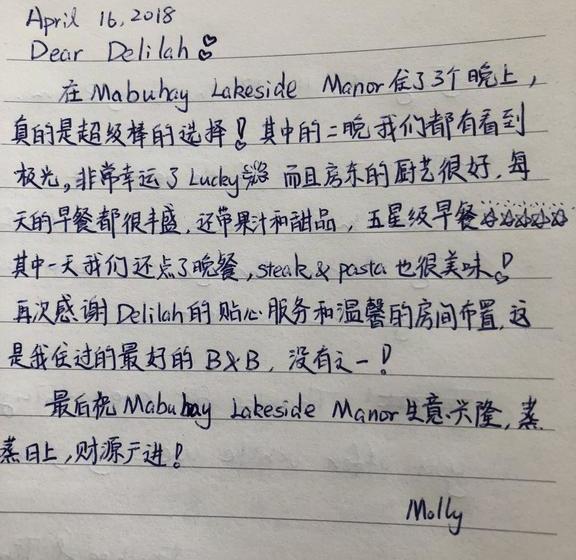 April 16, 2018
Dear Delilah
在 Mabuhay Lakeside Manor住了3个晚上,
真的是超级棒的选择! 其中的二晚我们都有看到
极光,非常幸运了Lucky 而且房东的厨艺很好,每
天的早餐都很丰盛,还带果汁和甜品,五星级早餐☆☆☆☆☆
其中一天我们还点了晚餐,steak & pasta 也很美味!
再次感谢Delilah的贴心服务和温馨的房间布置,这
是我住过的最好的 B&B, 没有之一!
最后祝 Mabuhay Lakeside Manor生意兴隆,蒸
蒸日上,财源广进!
Molly